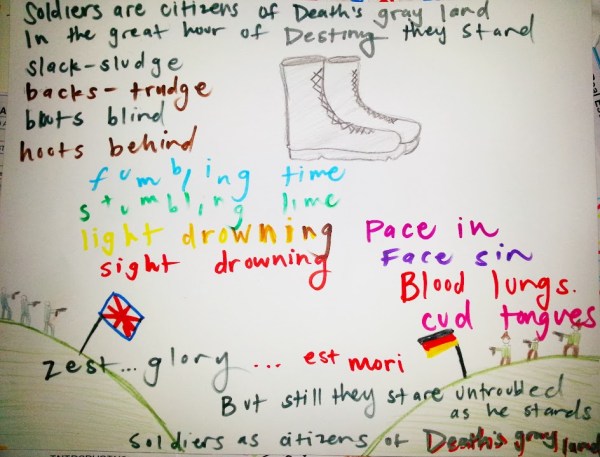 Soldiers are citizens of Death's gray land
In the great hour of Destiny they stand
slack-sludge
backs-trudge
boots blind
hoots behind
fumbling time
stumbling lime
light drowning
sight drowning
Pace in
Face sin
Blood lungs.
cud tongues
zest... glory ... est mori
But still they stare untroubled
as he stands
Soldiers as citizens of Death's gray land